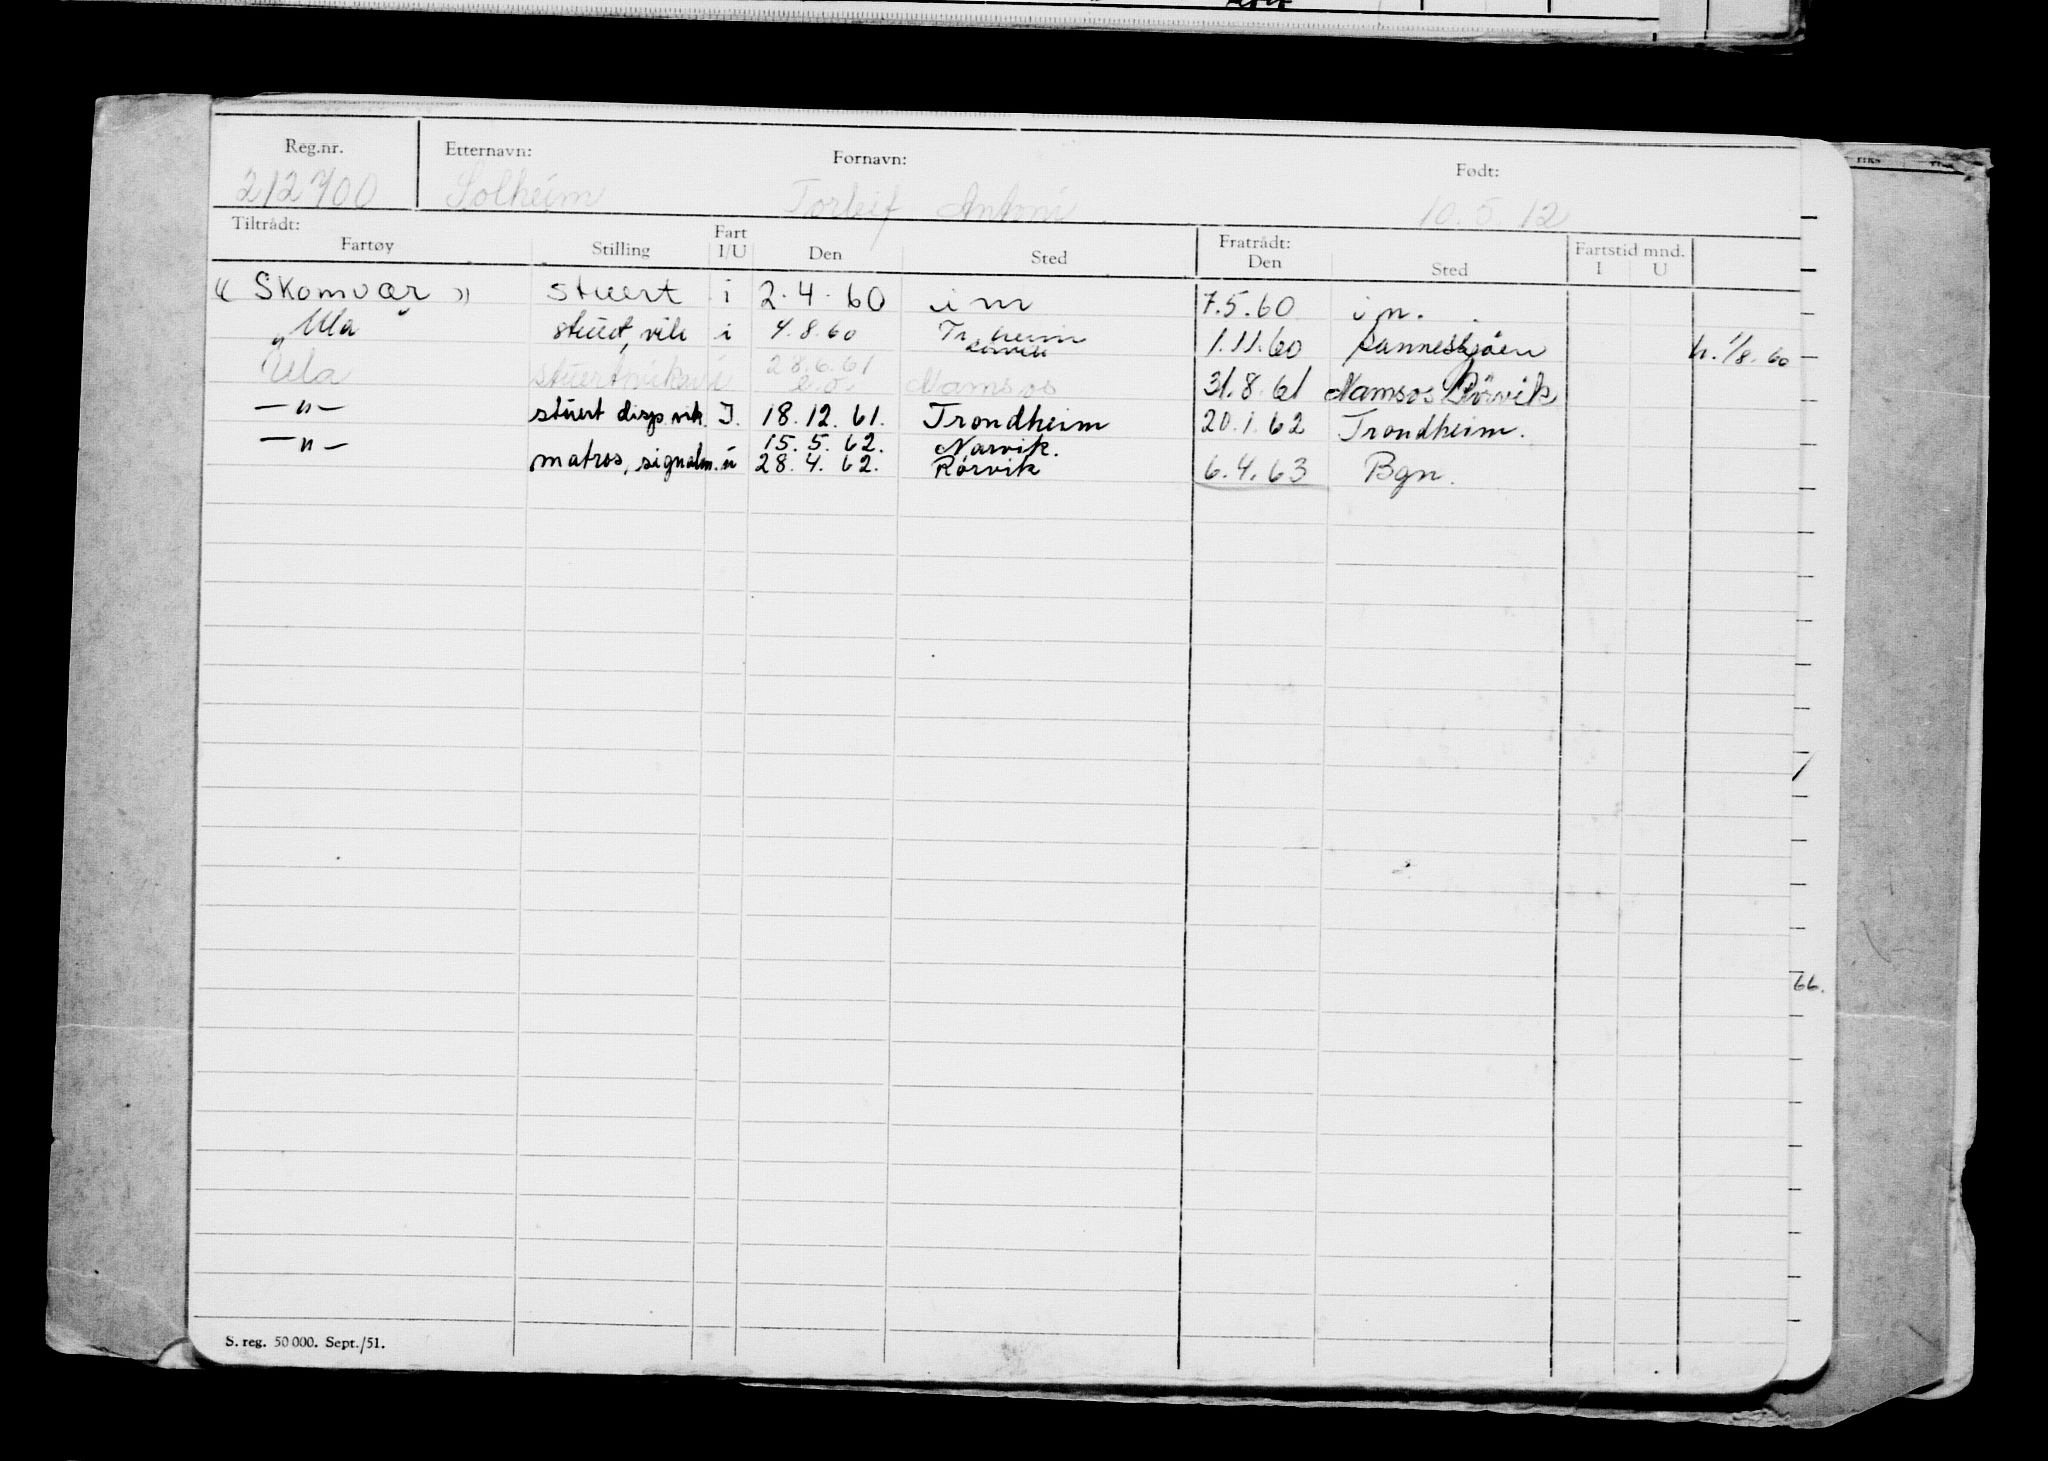 Reg.nr. Etternavn: Fornavn: Født:
212700 Solheim Torleif Antoni 10.5.12
Tiltrådt: Fartøy Stilling Fart I/U Den Sted Fratrådt: Den Sted Fartstid mnd. I U
« Skomvær » stuert i 2.4.60 im 7.5.60 im.
"Ula stuert, vik i 4.8.60 Tr.heim Rørvik 1.11.60 Sannesjøen h. 1/8. 60
Ula stuert i 28.6.61 Namsos 31.8.61 Namsos Rörvik
—"— stuert disp vik. I. 18.12.61. Trondheim 20.1.62 Trondheim.
—"— 15.5.62. Narvik.
matros, signalm. u 28.4.62. Rørvik 6.4.63 Bgn.
66.
S. reg. 50 000. Sept./51.